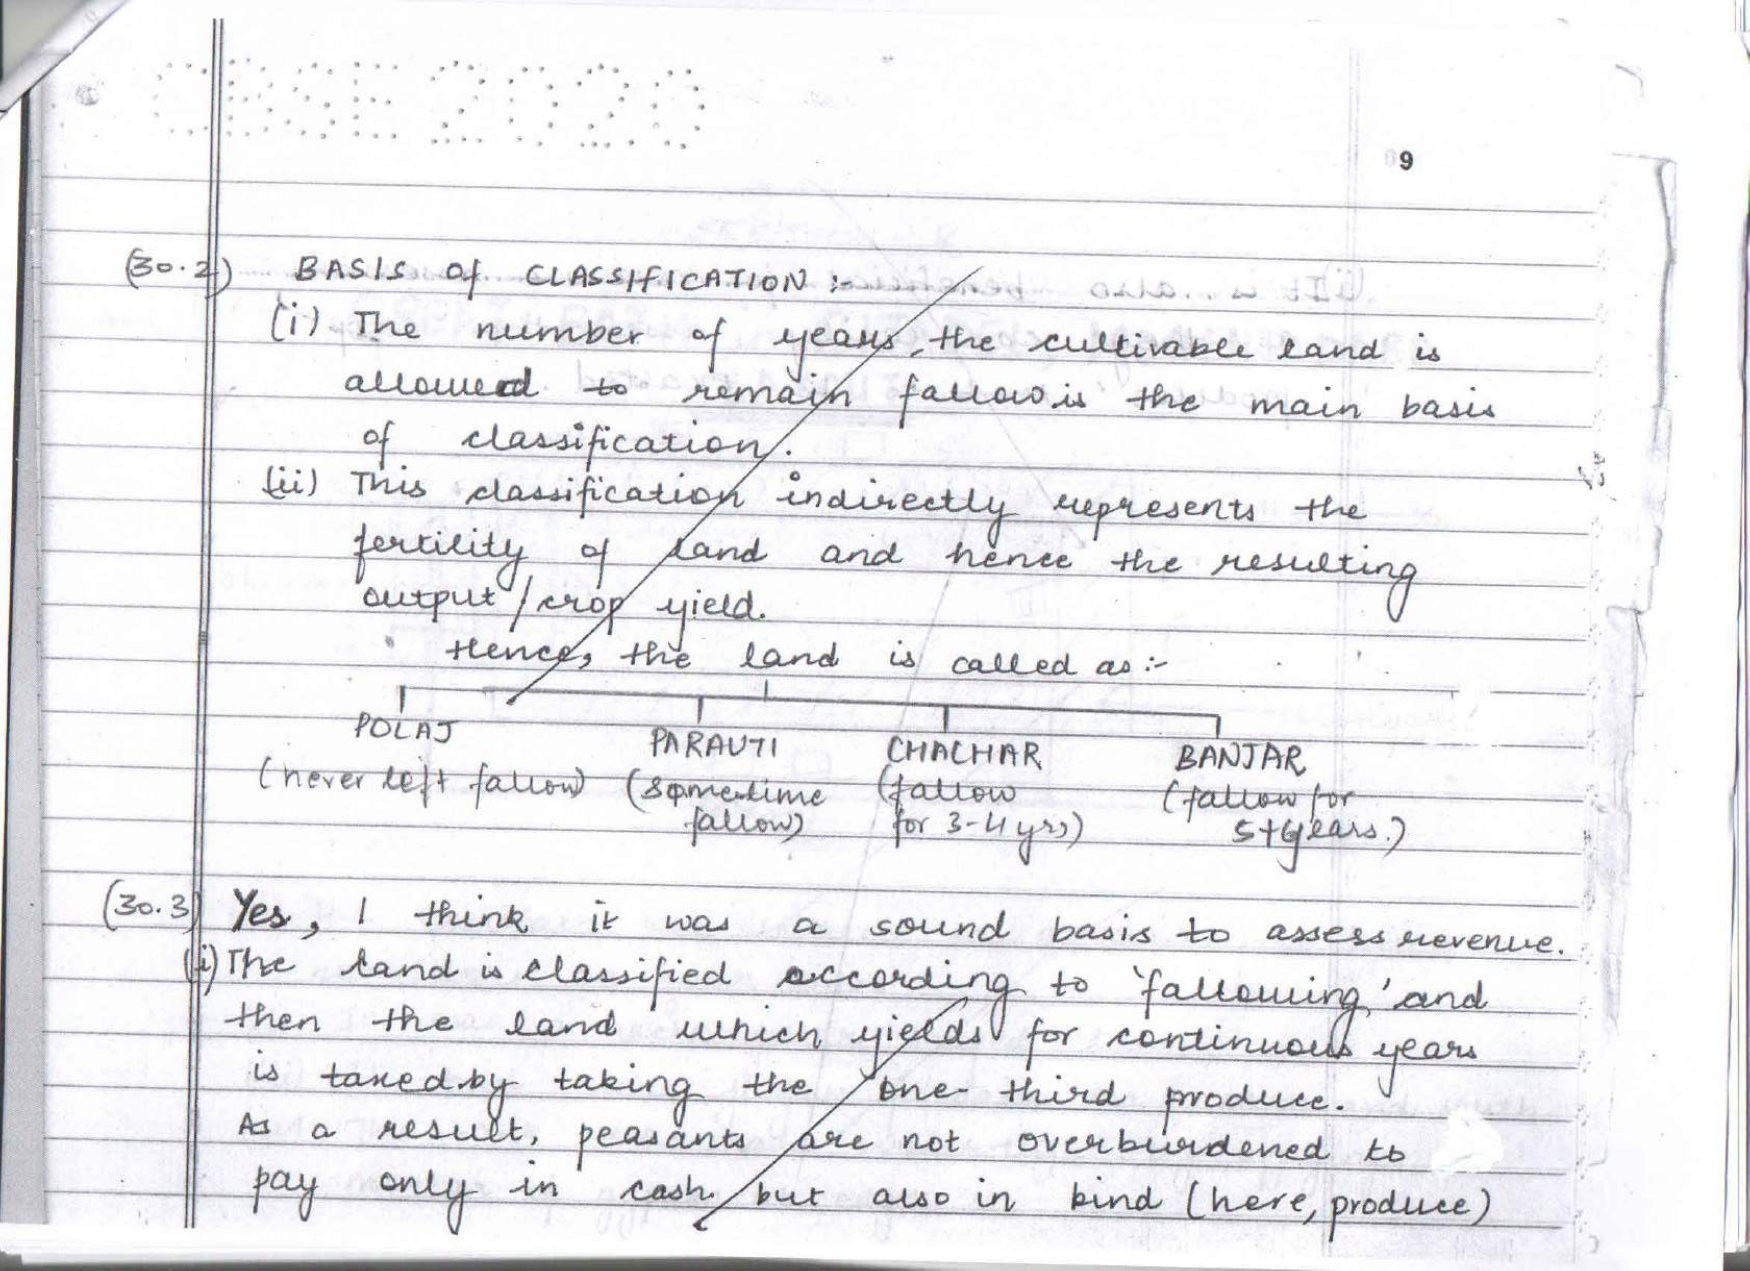 CBSE 2020
9
(30.2) BASIS of CLASSIFICATION :-
(i) The number of years, the cultivable land is
allowed to remain fallow is the main basis
of classification.
(ii) This classification indirectly represents the
fertility of land and hence the resulting
output / crop yield.
Hence, the land is called as :-
POLAJ PARAUTI CHACHAR BANJAR
(never left fallow) (sometime (fallow (fallow for
fallow) for 3-4 yrs) 5+ years.)
(30.3) Yes, I think it was a sound basis to assess revenue.
(i) The land is classified according to 'fallowing' and
then the land which yields for continuous years
is taxed by taking the one-third produce.
As a result, peasants are not overburdened to
pay only in cash but also in kind (here, produce)